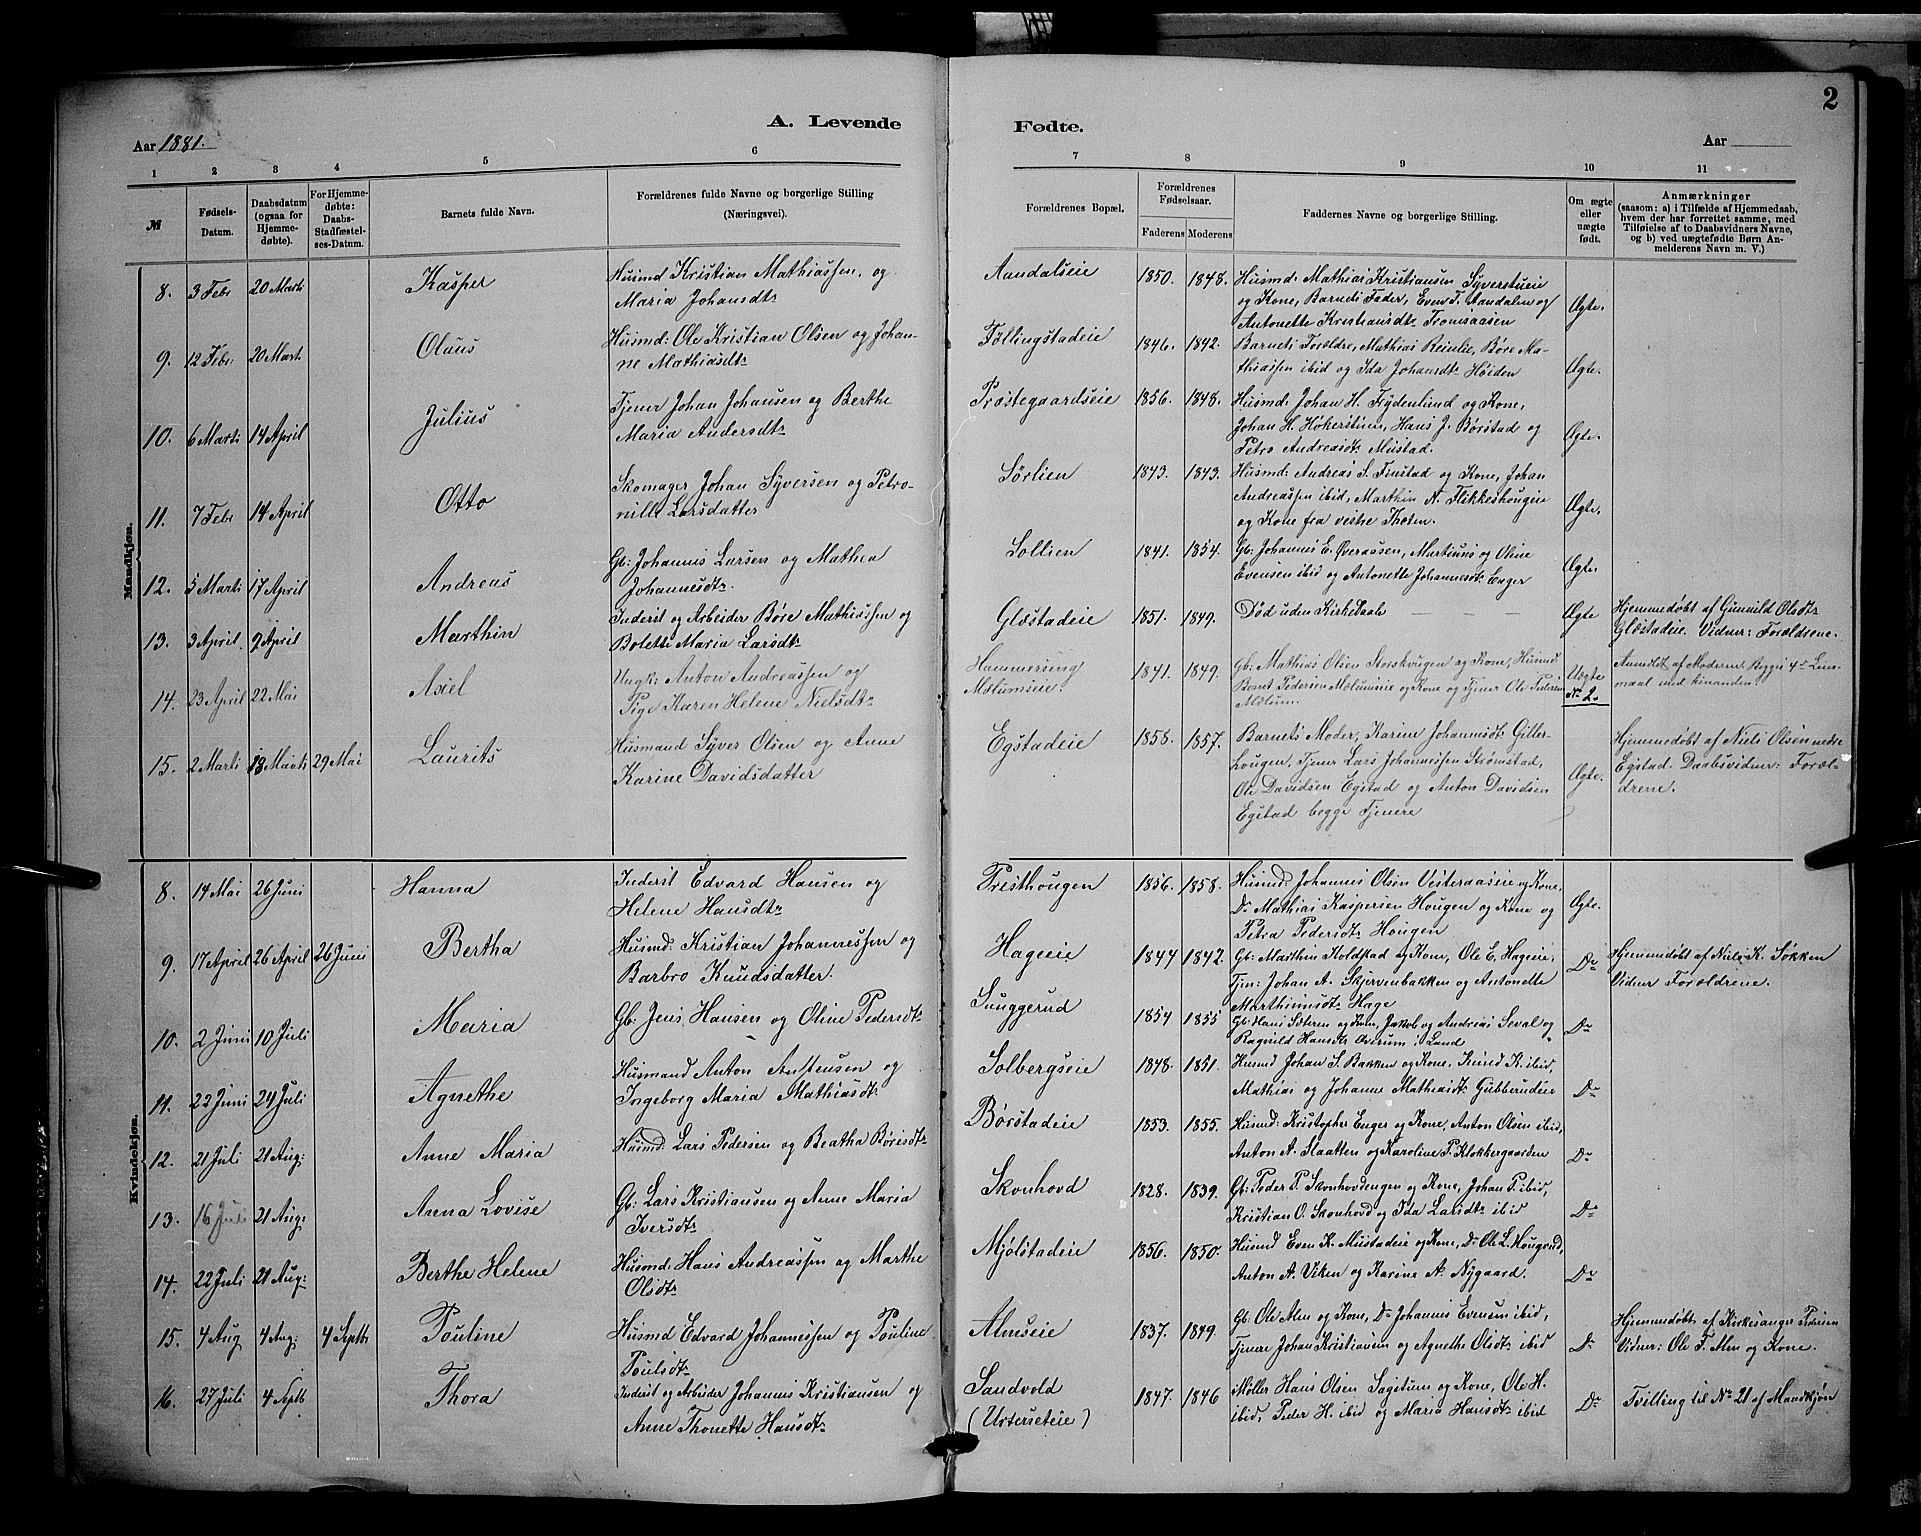 2
A. Levende Fødte.
Aar 1881.
Aar
1 2 3 4 5 6 7 8 9 10 11
№
Fødsels-Datum.
Daabsdatum (ogsaa for Hjemme-døbte).
For Hjemme-døbte: Daabs-Stadfæstel-ses-Datum.
Barnets fulde Navn.
Forældrenes fulde Navne og borgerlige Stilling
(Næringsvei).
Forældrenes Bopæl.
Forældrenes Fødselsaar.
Faderens Moderens
Faddernes Navne og borgerlige Stilling.
Om ægte eller uægte født.
Anmærkninger
(saasom: a) i Tilfælde af Hjemmedaab,
hvem der har forrettet samme, med
Tilføielse af to Daabsvidners Navne,
og b) ved uægtefødte Børn An-
melderens Navn m. V.)
Mandkjøn.
8. 3 Febr 20 Marts Kasper Husmd Kristian Mathiassen, og
Maria Johansdtr
Aandalseie 1850. 1848. Husmd: Mathias Kristiansen Syverstueie
og Kone, Barnets Fader, Even T. Aandalen og
Antonette Kristiansdtr Tromsaasen
Ægte.
9. 12 Febr: 20 Mart. Olaus Husmd: Ole Kristian Olsen og Johan-
ne Mathiasdtr
Føllingstadeie 1846. 1842. Barnets Forældre, Mathias Reinlie, Børe Ma-
thiassen ibid og Ida Johansdtr Høiden
Ægte.
10. 6 Marts 14 April Julius Tjener Johan Johansen og Berthe
Maria Andersdtr
Prostegaardseie 1856. 1848. Husmd: Johan H. Frydenlund og Kone,
Johan H. Høkerstuen, Hans J. Børstad og
Petro Andreasdtr Mustad.
Ægte.
11. 7 Febr 14 April Otto Skomager Johan Syversen og Petro-
nille Larsdatter
Sørlien 1843. 1843. Husmd: Andreas S. Finstad og Kone, Johan
Andreassen ibid, Marthin A. Flikkeshougen
og Kone fra vestre Thoten.
Ægte.
12. 5 Marts 17 April Andreas Gb: Johannes Larsen og Mathea
Johannesdtr
Sollien 1841. 1854. Gb: Johannes E. Øveraasen, Martinus og Oline
Evensen ibid og Antonette Johannesdtr Enger
Ægte
13. 3 April. 9 April Marthin Inderst og Arbeider Børe Mathiassen og
Bolette Maria Larsdtr
Glæstadeie 1851. 1849. Død uden Kirkedaab
Ægte
Hjemmedøbt af Gunild Olsdtr
Glæstadeie. Vidner: Forældrene.
14. 23 April 22 Mai Axel Ungk: Anton Andreassen og
Pige Karen Helene Nielsdtr
Hammerseng
Mælumseie.
1841. 1849. Gb: Mathias Olsen Storskougen og Kone, Husmd
Bernt Pedersen Mælumseie og Kone og Tjener Ole Pedersen
Mælum.
Uægte
No 2.
Anmeldt af Moderen. Begges 4de Leier-
maal med hinanden.
15. 2 Marts 13 Marts 29 Mai Laurits Husmand Syver Olsen og Anne
Karine Davidsdatter
Egstadeie 1858. 1857. Barnets Moder, Karine Johannsdtr Giller-
hougen, Tjener Lars Johannessen Strømstad,
Ole Davidsen Egstad og Anton Davidsen
Egstad begge Tjenere
Ægte.
Hjemmedøbt af Niels Olsen nedre
Egstad. Daabsvidner: Foræl-
drene.
Kvindekjøn.
8. 14 Mai 26 Juni Hanna Inderst Edvard Hansen og
Helene Hansdtr
Presthougen 1856. 1858. Husmd: Johannes Olsen Vesteraaseie og Kone,
Do Mathias Kaspersen Hougen og Kone og
Petra Pedersdtr Hougen
Ægte.
9. 17 April 26 April 26 Juni Bertha Husmd: Kristian Johannessen og
Barbro Knudsdatter.
Hageeie 1844 1842. Gb: Marthin Koldstad og Kone, Ole E. Hageeie,
Tjen: Johan A. Skjervenbakken og Antonette
Marthinusdtr Hage
Do
Hjemmedøbt af Niels K. Søkken
Vidner Forældrene.
10. 2 Juni 10 Juli Maria Gb: Jens Hansen og Oline Pedersdtr
Snuggerud 1854 1855 Gb: Hans Sæteren og Kone, Jakob og Andreas Seval og
Ragnild Hansdtr Øverum i Land
Do
11. 22 Juni 24 Juli Agnethe Husmand Anton Antensen og
Ingeborg Maria Mathiasdtr
Solbergseie 1848. 1851. Husmd Johan S. Bakken og Kone, Knud K. ibid,
Mathias og Johanne Mathiasdtr Gubberudeie
Do
12. 21 Juli 21 Aug: Anne Maria Husmd: Lars Pedersen og Beatha Børesdtr
Børstadeie 1853. 1855. Husmd: Kristopher Enger og Kone, Anton Olsen ibid,
Anton A. Slaatten og Karoline P. Klokkergaarden
Do
13. 16 Juli 21 Aug: Anna Lovise Gb: Lars Kristiansen og Anne Maria
Iversdtr
Skonhovd 1828. 1839. Gb: Peder P. Skonhovdengen og Kone, Johan P. ibid,
Kristian O. Skonhovd og Ida Larsdtr ibid
Do
14. 22 Juli 21 Aug: Berthe Helene Husmd: Hans Andreassen og Marthe
Olsdtr
Mjølstadeie 1856. 1850. Husmd Even K. Mustadeie og Kone, Do Ole L. Hougsrud,
Anton A. Viken og Karine A. Nygaard.
Do
15. 4 Aug 4 Aug: 4 Septb Pouline Husmd Edvard Johannessen og Pouline
Poulsdtr
Almseie 1837. 1849. Gb: Ole Alm og Kone, Do Johannes Evensen ibid,
Tjenere Johan Kristiansen og Agnethe Olsdtr ibid
Do
Hjemmedøbt af Kirkesanger Pedersen
Vidner: Ole T. Alm og Kone.
16. 27 Juli 4 Septb Thora Inderst og Arbeider Johannes Kristiansen og
Anne Thonette Hansdtr
Sandvold
(Urterseteie)
1847. 1846 Møller Hans Olsen Sagstuen og Kone, Ole H.
ibid, Peder H. ibid og Maria Hansdtr ibid
Do
Tvilling til No 21 af Mandkjøn